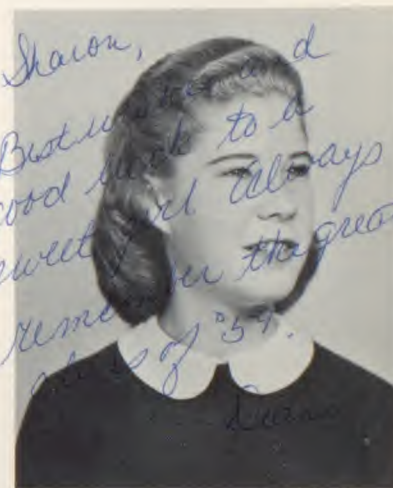 Sharon,
Best wishes and
good luck to a
sweet girl always
remember the great
class of '59.